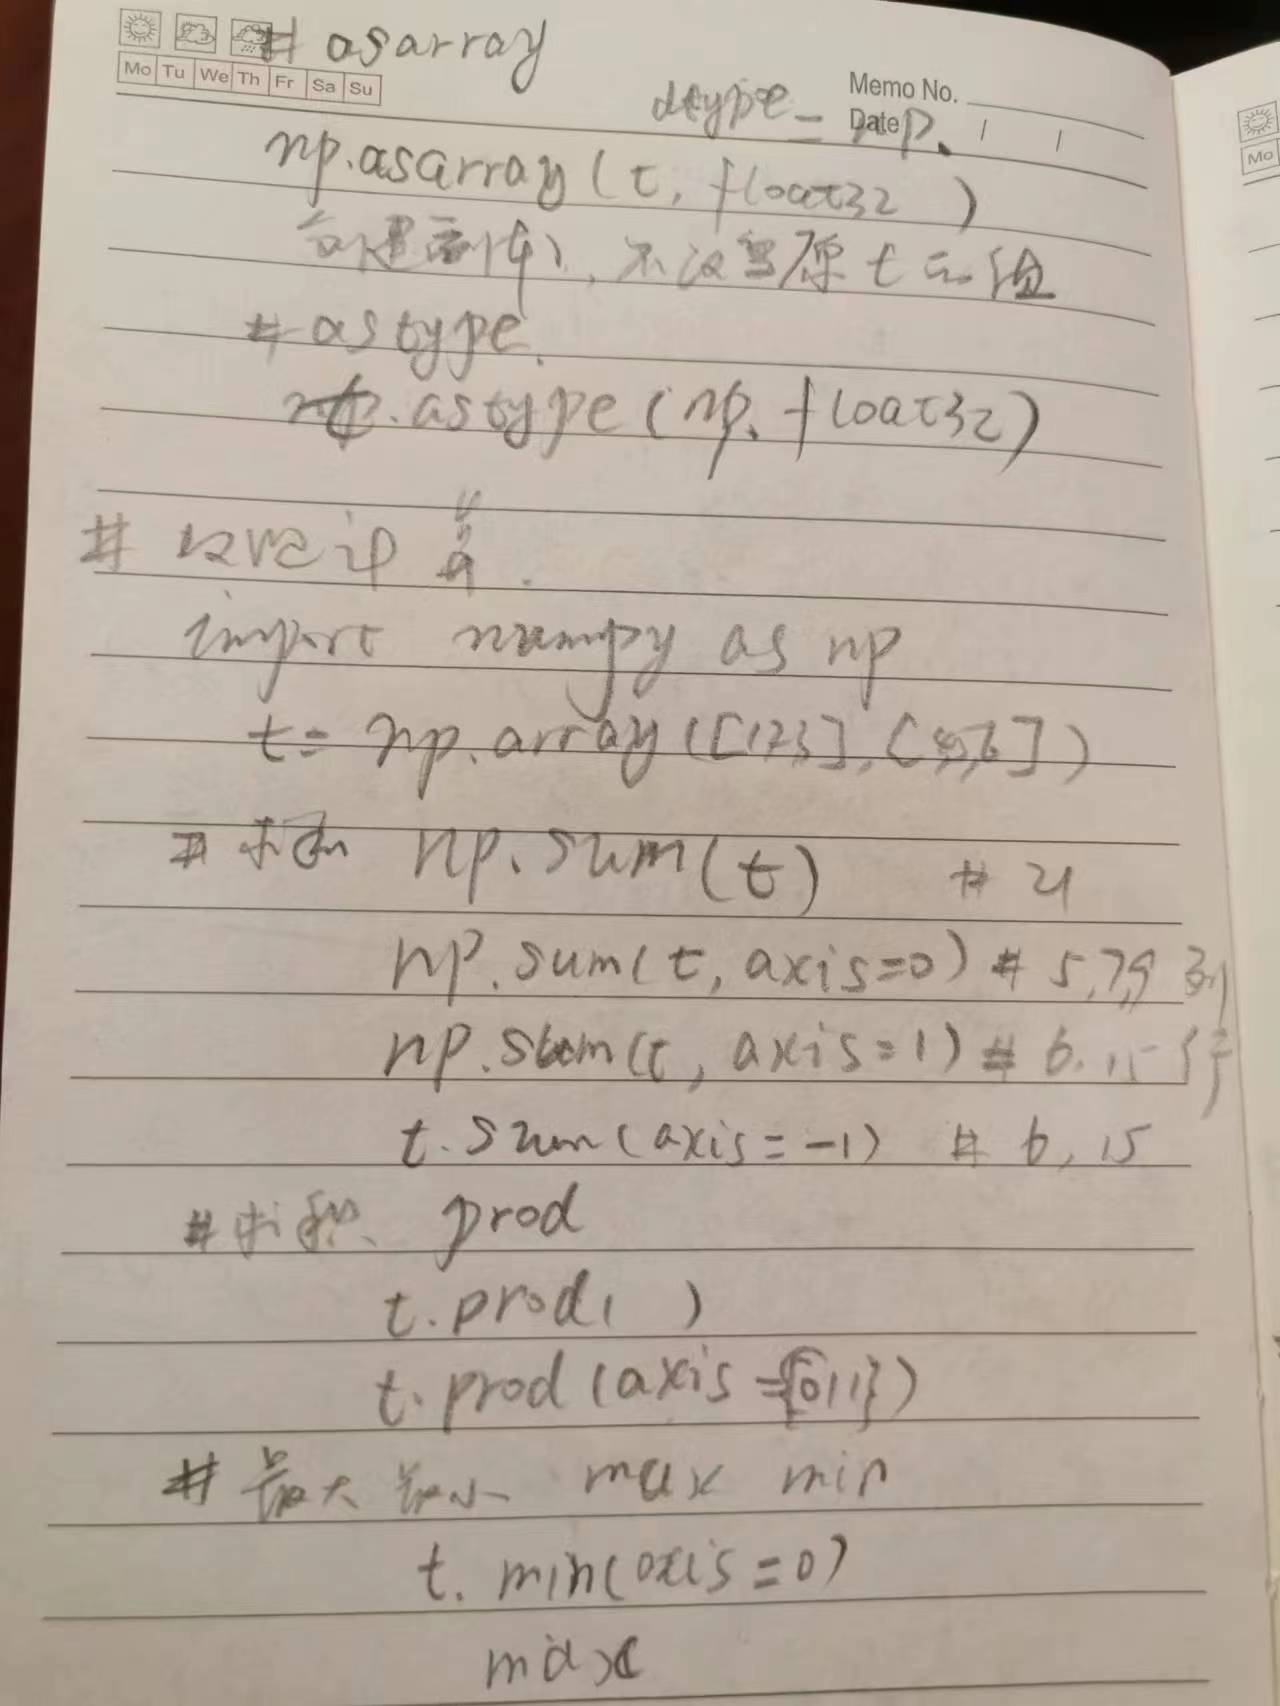 # asarray
Mo Tu We Th Fr Sa Su
Memo No.
Date / /
dtype = np.
np.asarray(t, float32 )
创建副本, 不改变原t的值
# astype.
t.astype(np.float32)
#
import numpy as np
t = np.array([123], [4,5,6])
# 求和 np.sum(t) # 21
np.sum(t, axis=0) # 5,7,9 列
np.sum(t, axis=1) # 6. 15 行
t.sum(axis=-1) # 6, 15
# 求积、 prod
t.prod( )
t.prod(axis={0|1})
# 最大 最小 max min
t. min(axis=0)
max
Mo